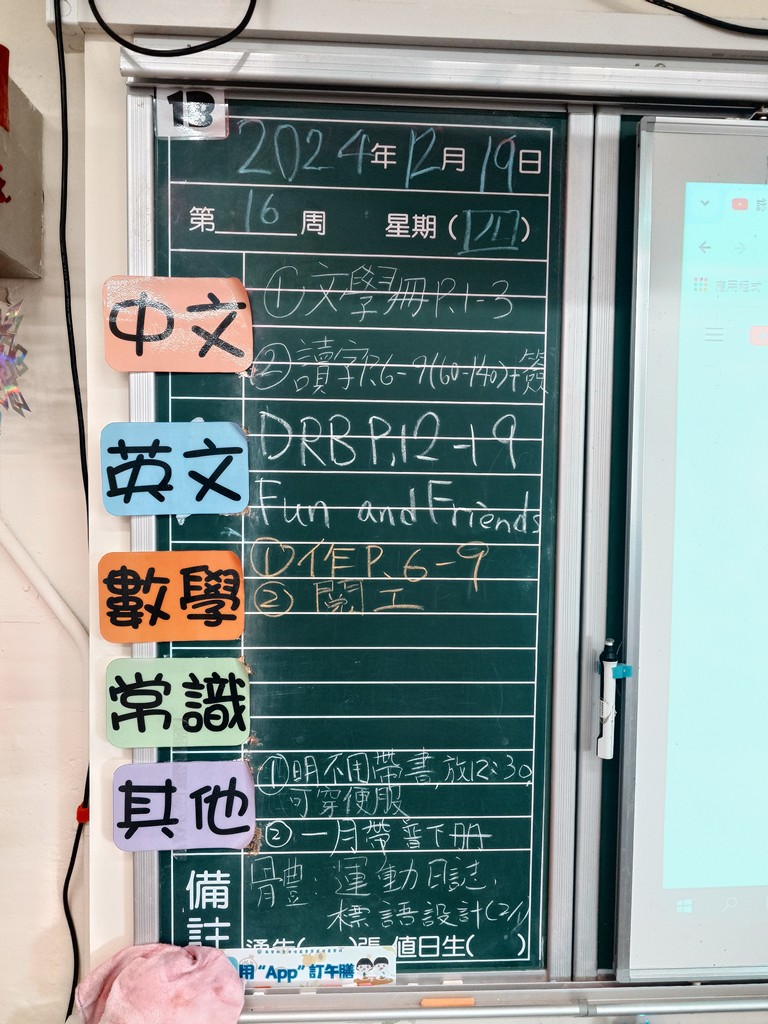 1B
2024年12月19日
第16周 星期(四)
中文
①文學冊P.1-3
②讀字P.6-9(60-140)+簽
英文
DRB P.12-19
Fun and Friends
數學
①作P.6-9
②閱工
常識
其他
①明不用帶書,放12:30,
可穿便服
②一月帶普下冊
備註
體:運動日誌,
標語設計(2/1)
通告( )張 值日生( )
用“App”訂午膳
應用程式